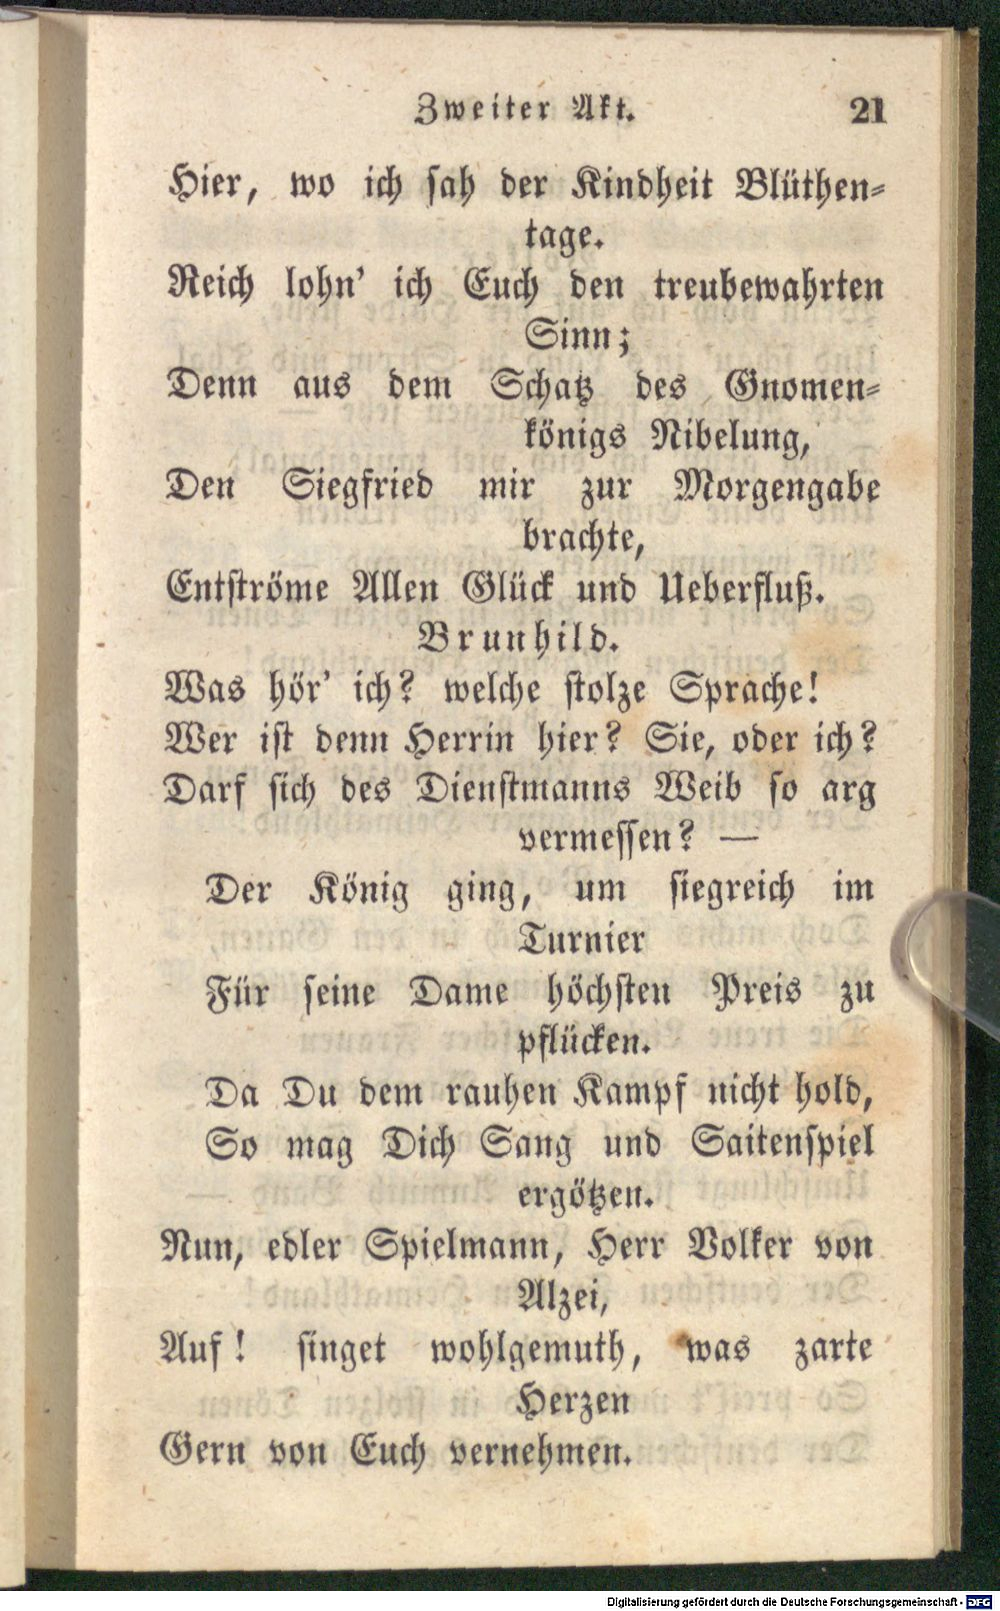 Zweiter Akt. 21
Hier, wo ich sah der Kindheit Blüthen-
tage.
Reich lohn' ich Euch den treubewahrten
Sinn;
Denn aus dem Schatz des Gnomen-
königs Nibelung,
Den Siegfried mir zur Morgengabe
brachte,
Entströme Allen Glück und Ueberfluß.
Brunhild.
Was hör' ich? welche stolze Sprache!
Wer ist denn Herrin hier? Sie, oder ich?
Darf sich des Dienstmanns Weib so arg
vermessen? —
Der König ging, um siegreich im
Turnier
Für seine Dame höchsten Preis zu
pflücken.
Da Du dem rauhen Kampf nicht hold,
So mag Dich Sang und Saitenspiel
ergötzen.
Nun, edler Spielmann, Herr Volker von
Alzei,
Auf! singet wohlgemuth, was zarte
Herzen
Gern von Euch vernehmen.
Digitalisierung gefördert durch die Deutsche Forschungsgemeinschaft - DFG